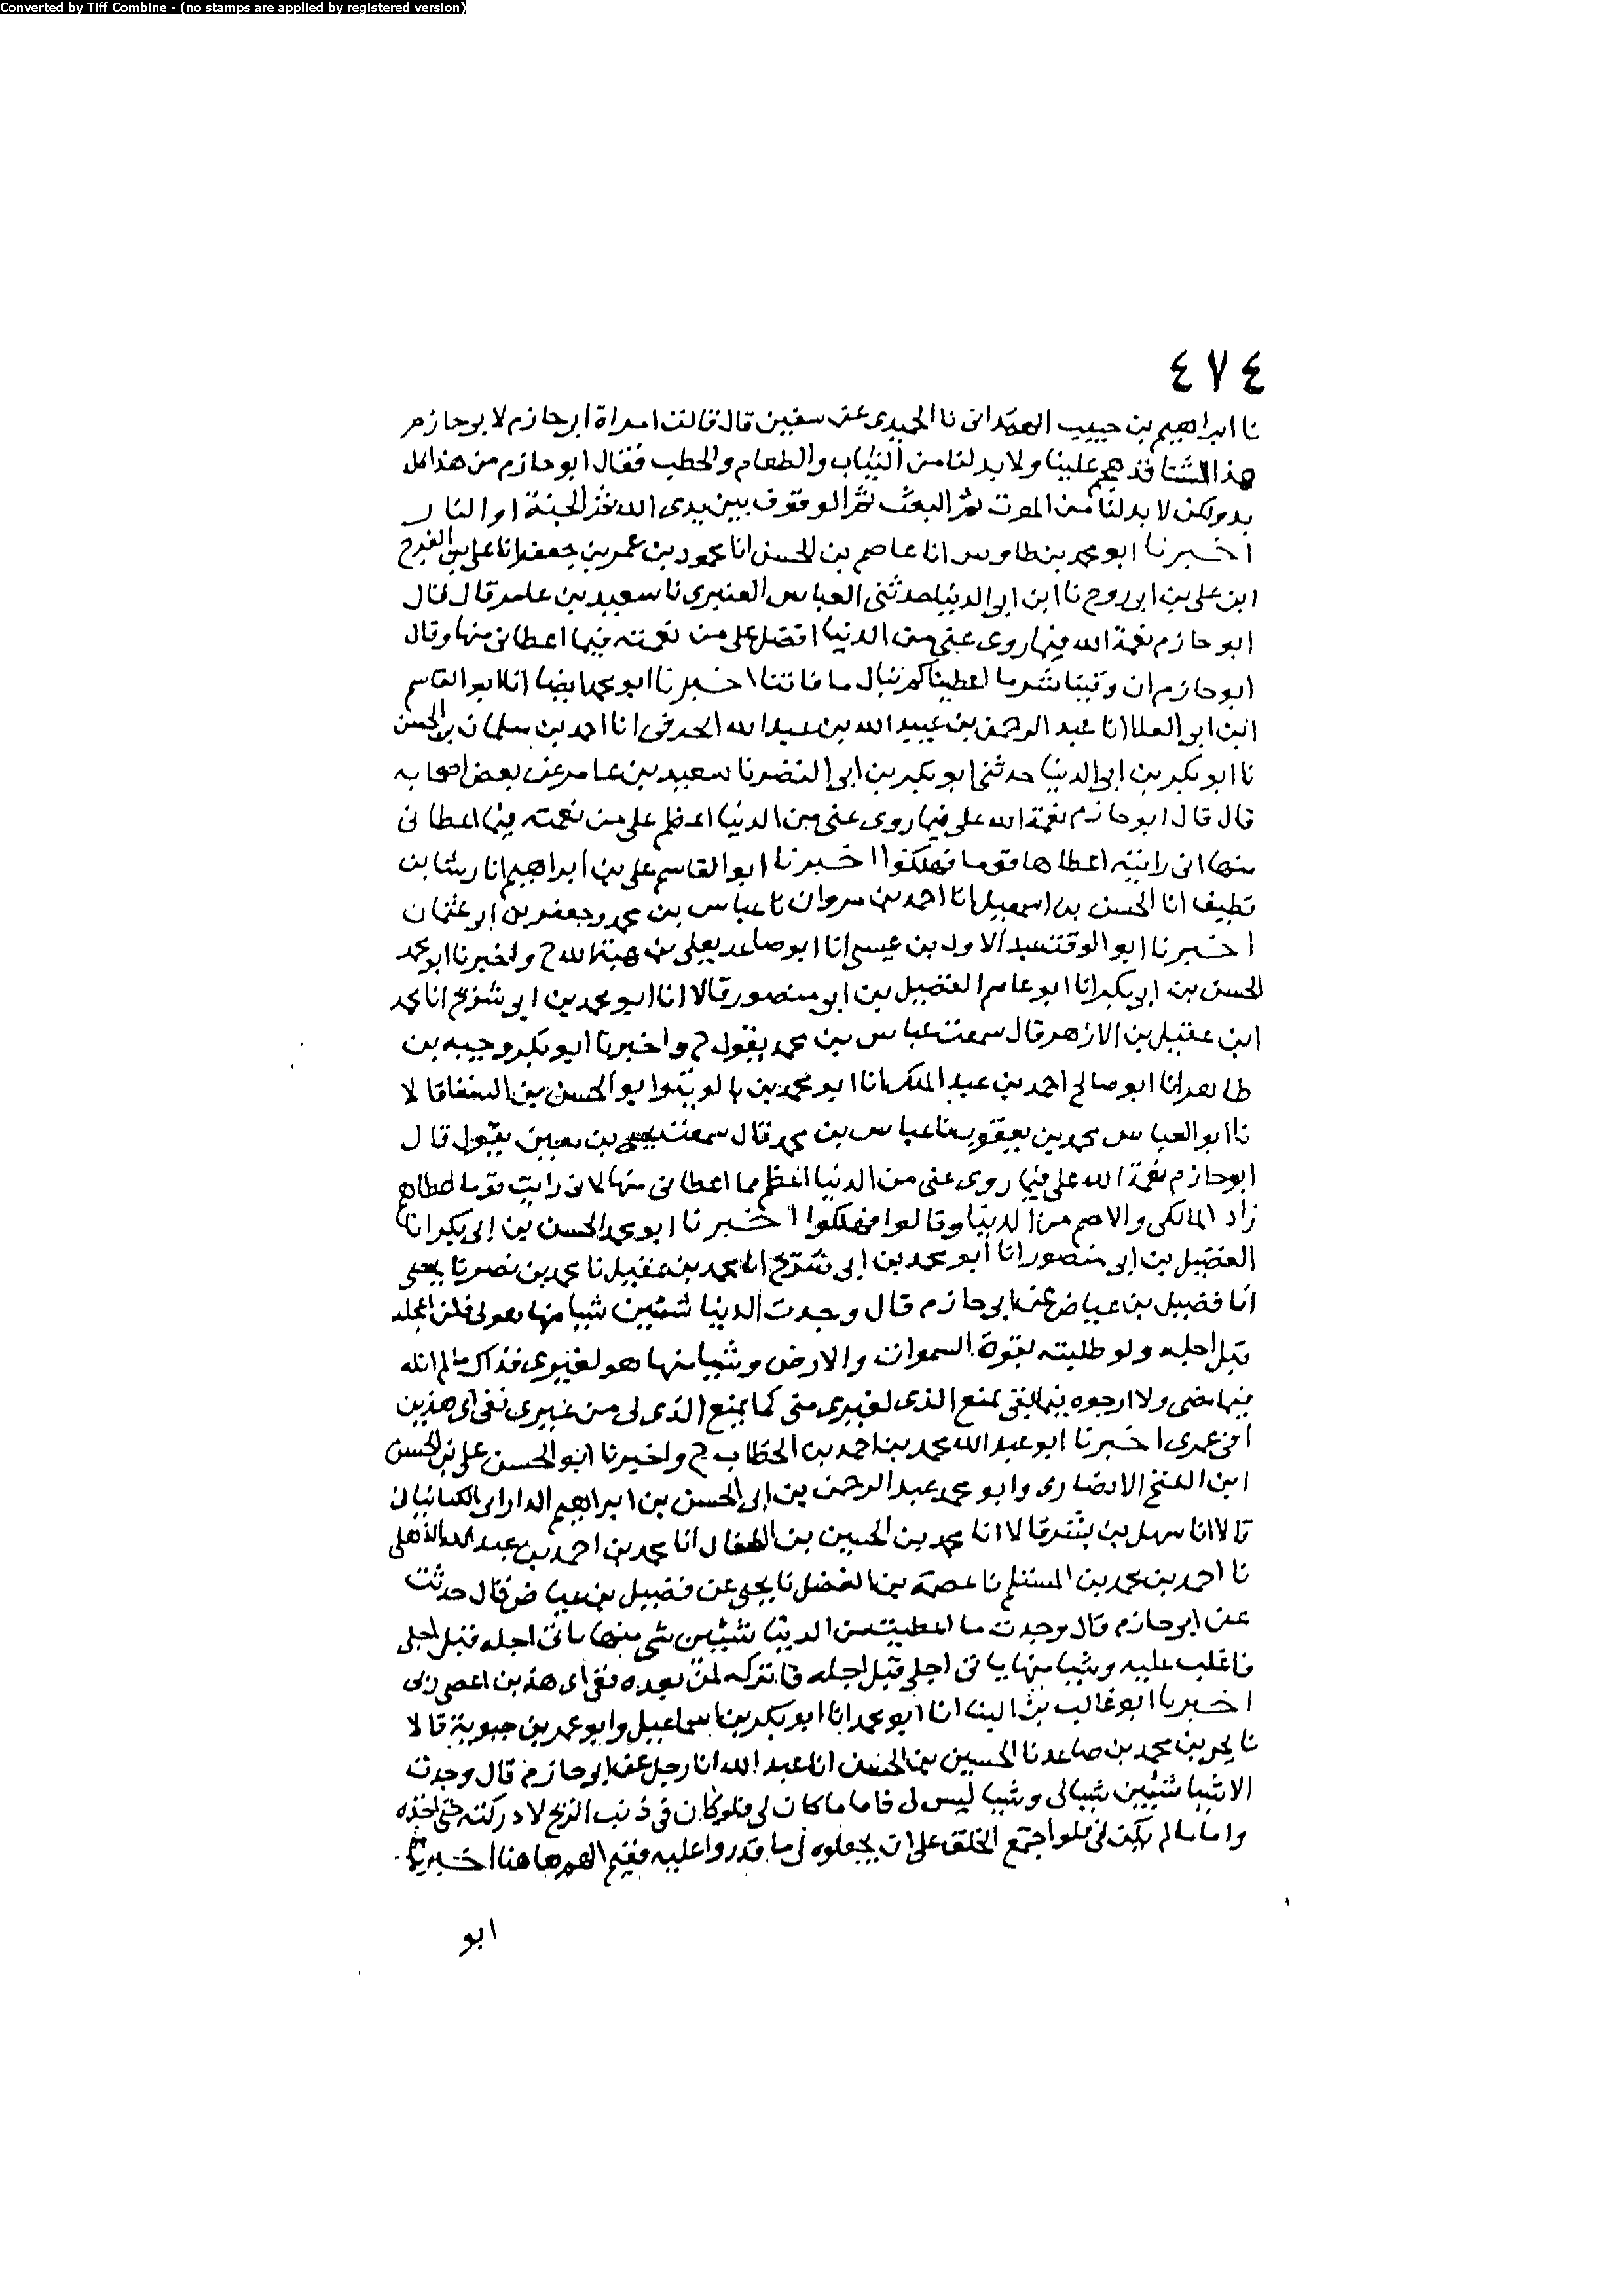 Converted by Tiff Combine - (no stamps are applied by registered version)
٤٧٤
نا ابراهيم بن حبيب الهمدانى نا الحميدى عن سفين قال قالت امراة ابو حازم لابو حازم
هذا الشتا قد هجم علينا ولا بد لنا من الثياب والطعام والحطب فقال ابو حازم من هذا كل
بد ولكن لا بد لنا من الموت ثم البعث ثم الوقوف بين يدى الله ثم الجنة او النار
اخبرنا ابو محمد بن طاوس انا عاصم بن الحسن انا محمود بن عمر بن جعفر انا على بن الفرج
ابن على بن ابى روح نا ابن ابى الدنيا حدثنى العباس العنبرى نا سعيد بن عامر قال قال
ابو حازم نعمة الله فيما روى عنى من الدنيا افضل على من نعمته فيما اعطانى منها وقال
ابو حازم ان وقينا شر ما اعطينا لم نبال ما فاتنا اخبرنا ابو محمد ايضا انا ابو القاسم
ابن ابو العلا انا عبد الرحمن بن عبيد الله بن عبد الله الحرفى انا احمد بن سلمان بن الحسن
نا ابو بكر بن ابى الدنيا حدثنى ابو بكر بن ابى النضر نا سعيد بن عامر عن بعض اصحابه
قال قال ابو حازم نعمة الله على فيما روى عنى من الدنيا اعظم على من نعمته فيما اعطانى
منها انى رايته اعطاها قوما فهلكوا اخبرنا ابو القاسم على بن ابراهيم انا رشا بن
نطيف انا الحسن بن اسمعيل انا احمد بن مروان نا عباس بن محمد وجعفر بن ابو عثمان
اخبرنا ابو الوقت عبد الاول بن عيسى انا ابو صاعد يعلى بن هبة الله ح واخبرنا ابو محمد
الحسن بن ابى بكر انا ابو عاصم الفضيل بن ابو منصور قالا انا ابو محمد بن ابو شريح انا محمد
ابن عقيل بن الازهر قال سمعت عباس بن محمد يقول ح واخبرنا ابو بكر وجيه بن
طاهر انا ابو صالح احمد بن عبد الملك انا ابو محمد بن بالويه وابو الحسن بن السقا قالا
نا ابو العباس محمد بن يعقوب نا عباس بن محمد قال سمعت يحيى بن معين يقول قال
ابو حازم نعمة الله على فيما روى عنى من الدنيا اعظم مما اعطانى منها لانى رايت قوما اعطاهم
زاد المالكى والاصم من الدنيا وقالوا فهلكوا اخبرنا ابو محمد الحسن بن ابى بكر انا
الفضيل بن ابى منصور انا ابو محمد بن ابى شريح انا محمد بن عقيل نا محمد بن نصر نا يحيى
انا فضيل بن عياض عن ابى حازم قال وجدت الدنيا شيئين شيا منها هو لى فلن اعجله
قبل اجله ولو طلبته بقوة السموات والارض وشيا منها هو لغيرى فذاك ما لم انله
فيما مضى ولا ارجوه فيما بقى يمنع الذى لغيرى منى كما يمنع الذى لى من غيرى ففى اى هذين
افنى عمرى اخبرنا ابو عبد الله محمد بن احمد بن الحطاب ح واخبرنا ابو الحسن على بن الحسن
ابن الفتح الانصارى وابو محمد عبد الرحمن بن ابى الحسن بن ابراهيم الدارانى الكنانيان
قالا انا سهل بن بشر قالا انا محمد بن الحسين بن الطفال انا محمد بن احمد بن عبد الله الذهلى
نا احمد بن محمد بن المستلم نا عصمة بن الفضل نا يحيى عن فضيل بن عياض قال حدثت
عن ابو حازم قال وجدت ما اعطيت من الدنيا شيئين شى منها ياتى اجله قبل اجلى
فاغلب عليه وشيا منها ياتى اجلى قبل اجله فاتركه لمن بعده ففى اى هذين اعصى ربى
اخبرنا ابو غالب بن البنا انا ابو محمد انا ابو بكر بن اسماعيل وابو عمر بن حيوية قالا
نا يحيى بن محمد بن صاعد نا الحسين بن الحسن انا عبد الله انا رجل عن ابو حازم قال وجدت
الاشيا شيئين شيا لى وشيا ليس لى فاما ما كان لى فلو كان فى ذنب الريح لادركته حتى اخذه
واما ما لم يكن لى فلو اجتمع الخلق على ان يجعلوه لى ما قدروا عليه ففيم الهم هاهنا اخبرنا
ابو